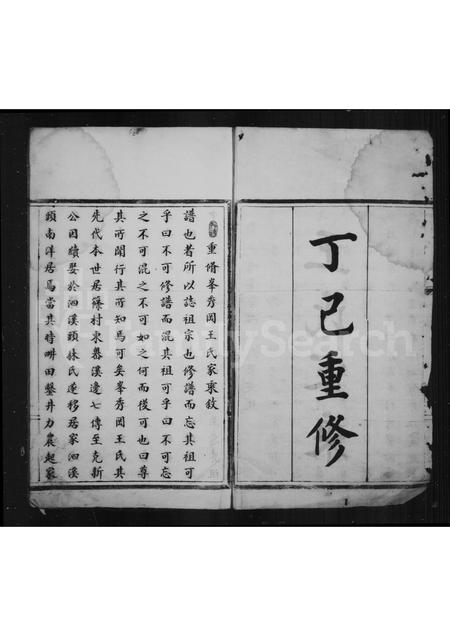 丁巳重修
重脩峯秀岡王氏家乘敘
譜也者所以誌祖宗也修譜而忘其祖可
乎曰不可修譜而混其祖可乎曰不可忘
之不可混之不可如之何而後可也曰尊
其所聞行其所知焉可矣峯秀岡王氏其
先代本世居篠村東暮溪邊七傳至克新
公因續娶於泗溪頭林氏遂移居家泗溪
頭南洋居焉當其時畊田鑿井力農起家
FamilySearch